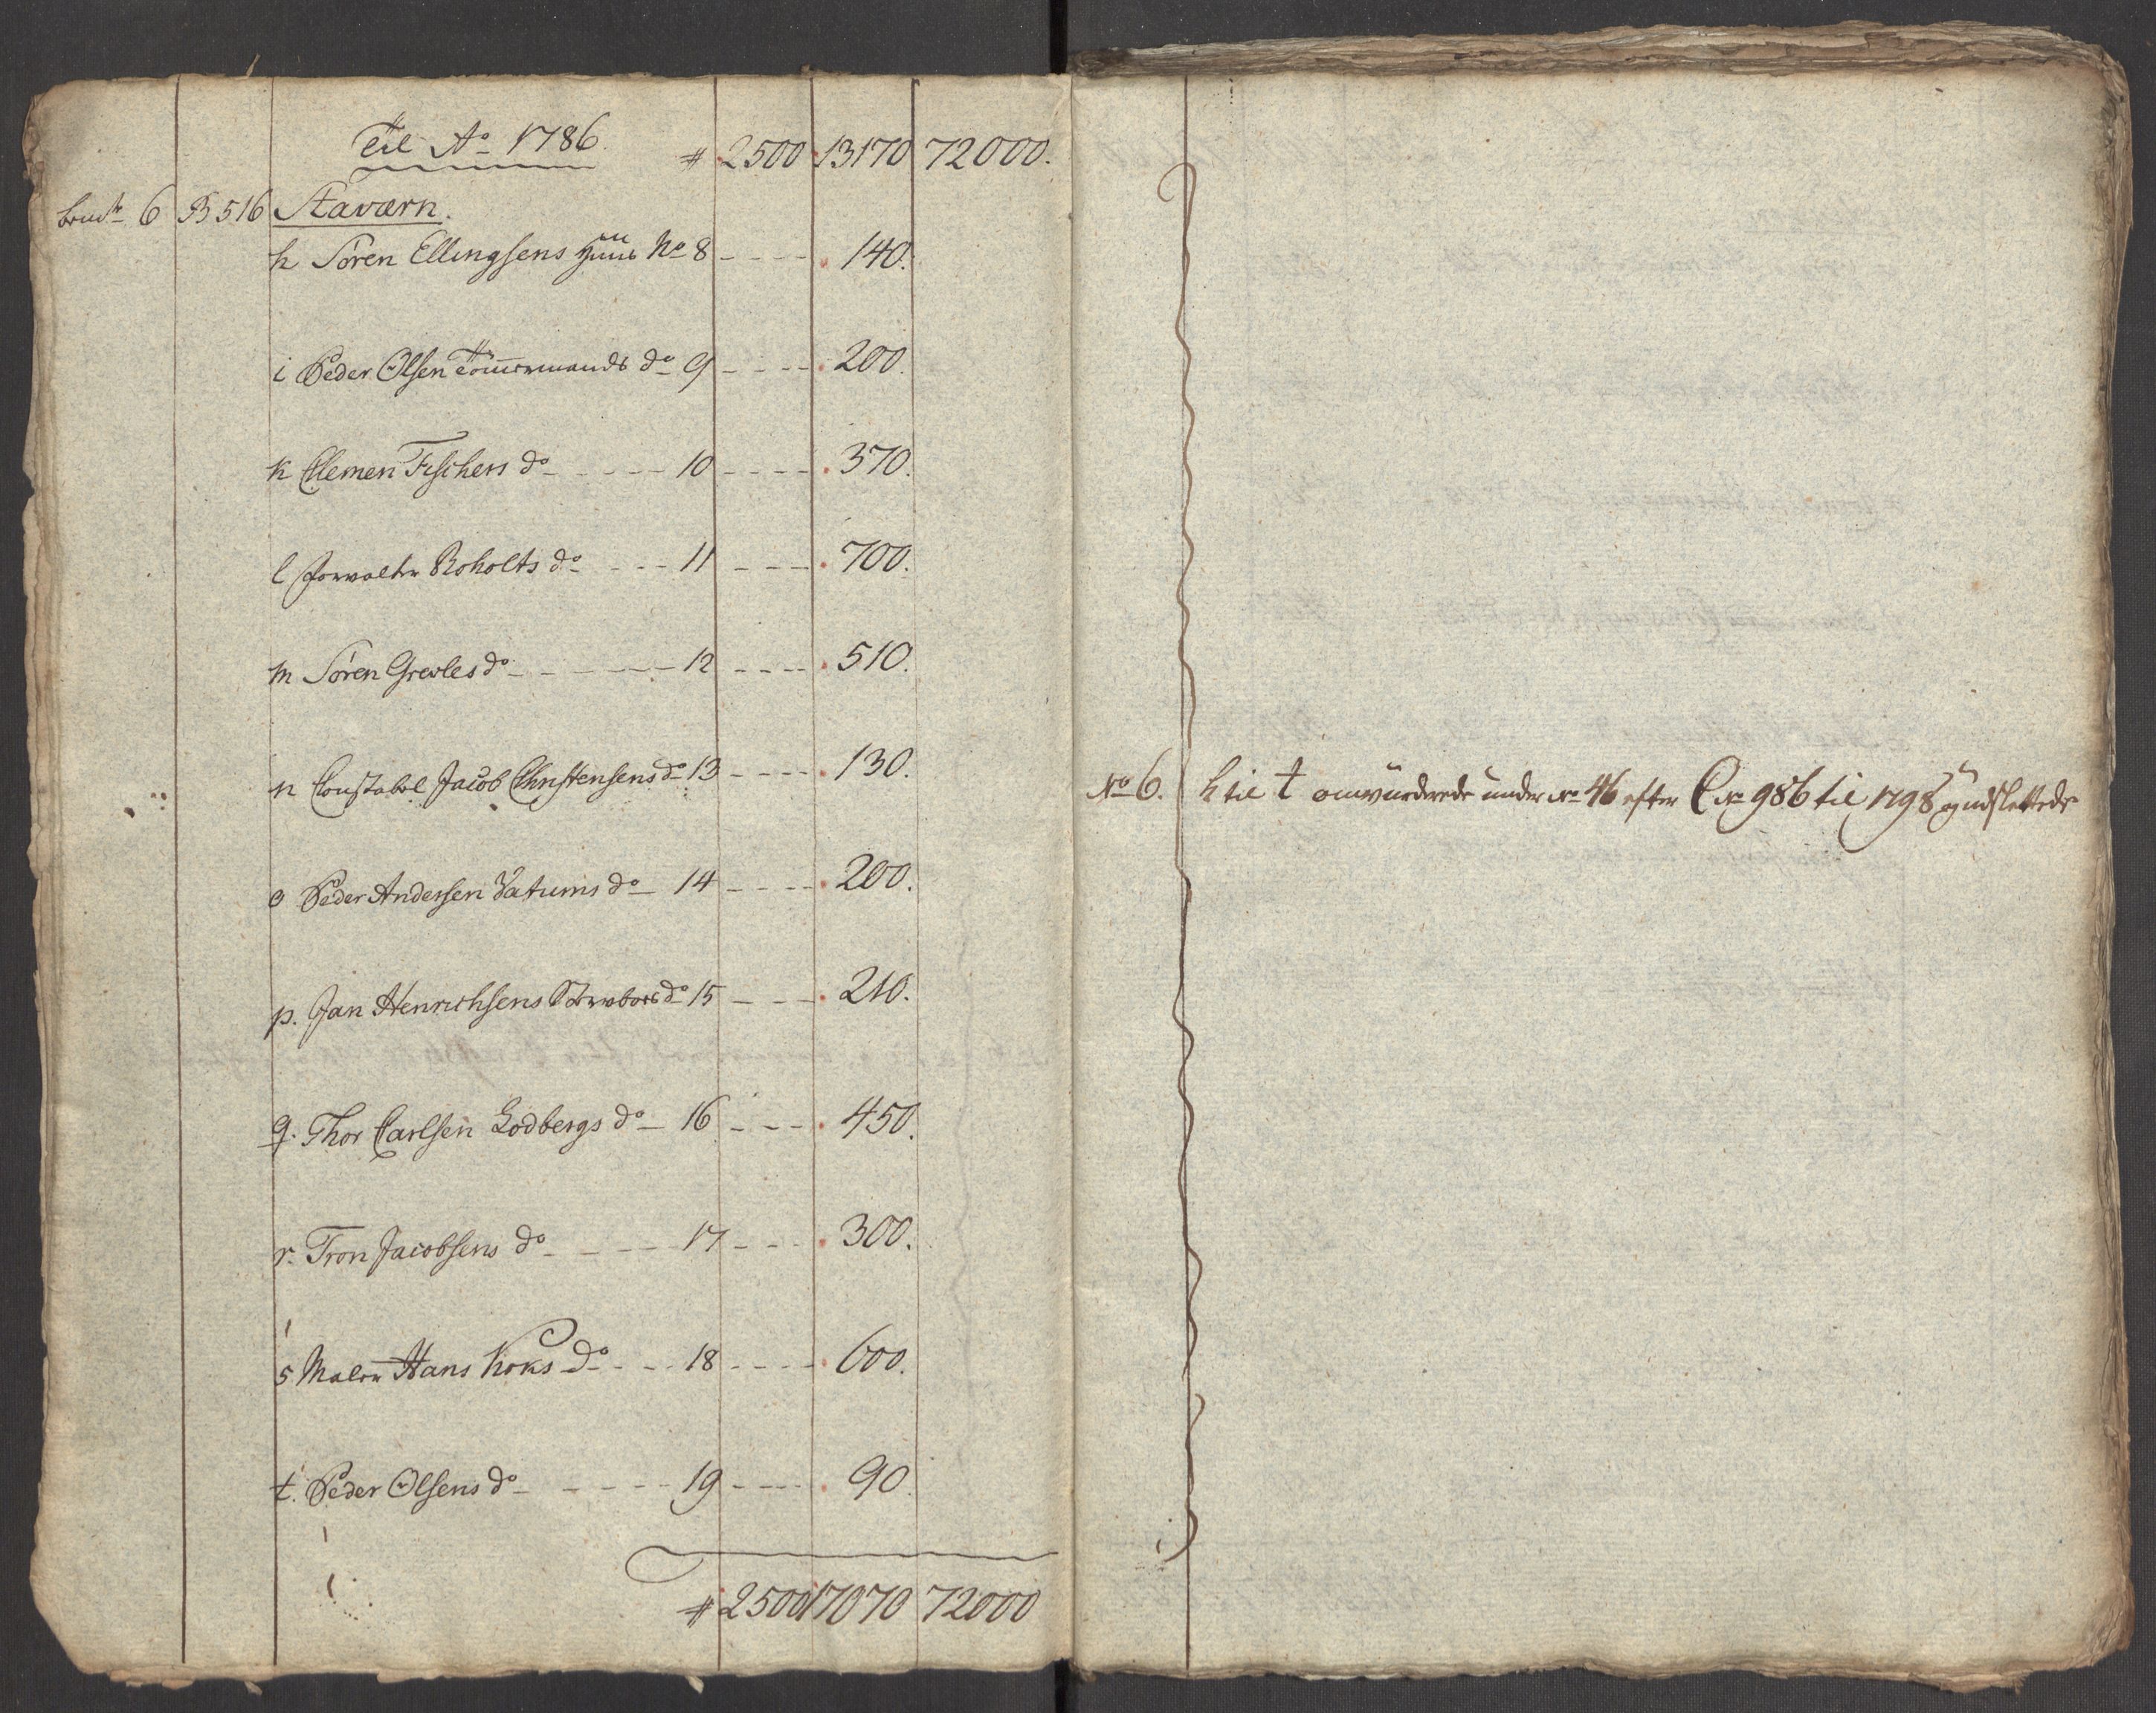 Til Ao 1786. # 2500 13170 72000.
6 B 516 Staværn.
h Sören Ellingsens Huus No 8 - - - - 140.
i Peder Olsen Tömmermands do 9 - - - - 200.
k Clemen Fischers do - - - - 10 - - - - 370.
l Forvalter Roholts do - - - 11 - - - 700.
m Sören Grevles do - - - - 12 - - - - 510.
n Constabel Jacob Christensens do 13 - - - - 130.
o Peder Andersen Vatums do - 14 - - - - 200.
p. Jan Henrichsens do 15 - - - 210.
q. Thor Carlsen Lodbergs do - 16 - - - 450.
r. Tron Jacobsens do - - - - 17 - - - 300.
s Maler Hans Koks do - - - - 18 - - - - 600.
t. Peder Olsens do - - - - - 19 - - - - 90.
# 2500 17070 72000
No 6. h til t omvurderede under No 46 efter C No 986 til 1798 og udslettede